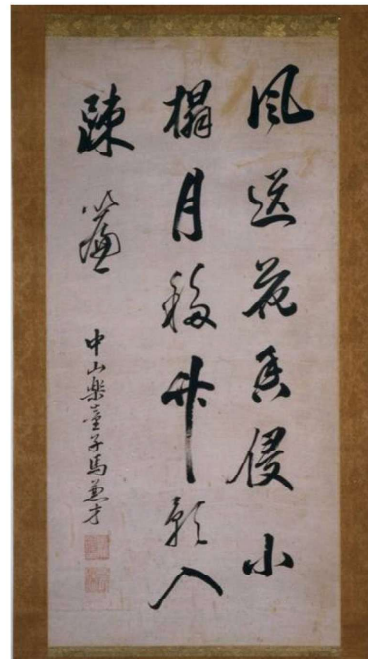 風送花香侵小
榻月移竹影入
疎簾
中山楽童子馬兼才